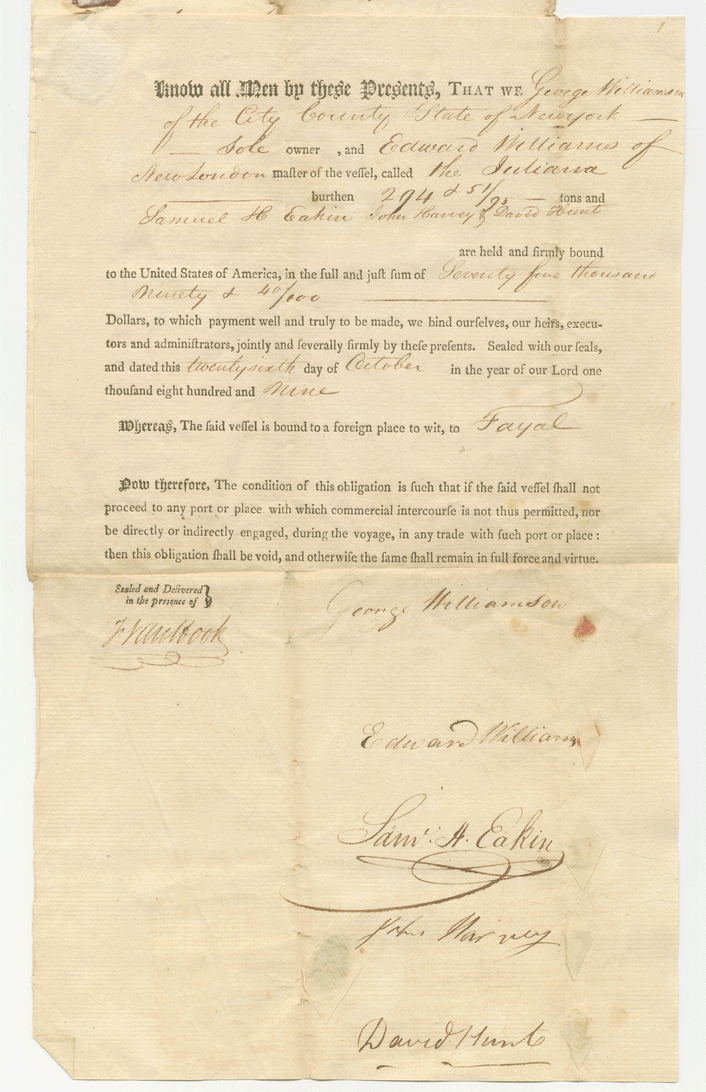 Know all Men by these Presents, THAT WE George Williamson
of the City County State of Newyork
Sole owner , and Edward Williams of
New London maſter of the veſſel, called the Juliana
burthen 294 & 51/95 tons and
Samuel H Eakin John Harvey & David Hunt
are held and firmly bound
to the United States of America, in the full and juſt ſum of Seventy five thousand
Ninety & 40/100
Dollars, to which payment well and truly to be made, we bind ourſelves, our heirs, execu-
tors and adminiſtrators, jointly and ſeverally firmly by theſe preſents. Sealed with our ſeals,
and dated this twentysixth day of October in the year of our Lord one
thouſand eight hundred and Nine
Whereas, The ſaid veſſel is bound to a foreign place to wit, to Fayal
Now therefore, The condition of this obligation is ſuch that if the ſaid veſſel ſhall not
proceed to any port or place with which commercial intercourſe is not thus permitted, nor
be directly or indirectly engaged, during the voyage, in any trade with ſuch port or place :
then this obligation ſhall be void, and otherwiſe the ſame ſhall remain in full force and virtue.
Sealed and Delivered
in the presence of
George Williamson
Edward Williams
Saml. H. Eakin
John Harvey
David Hunt